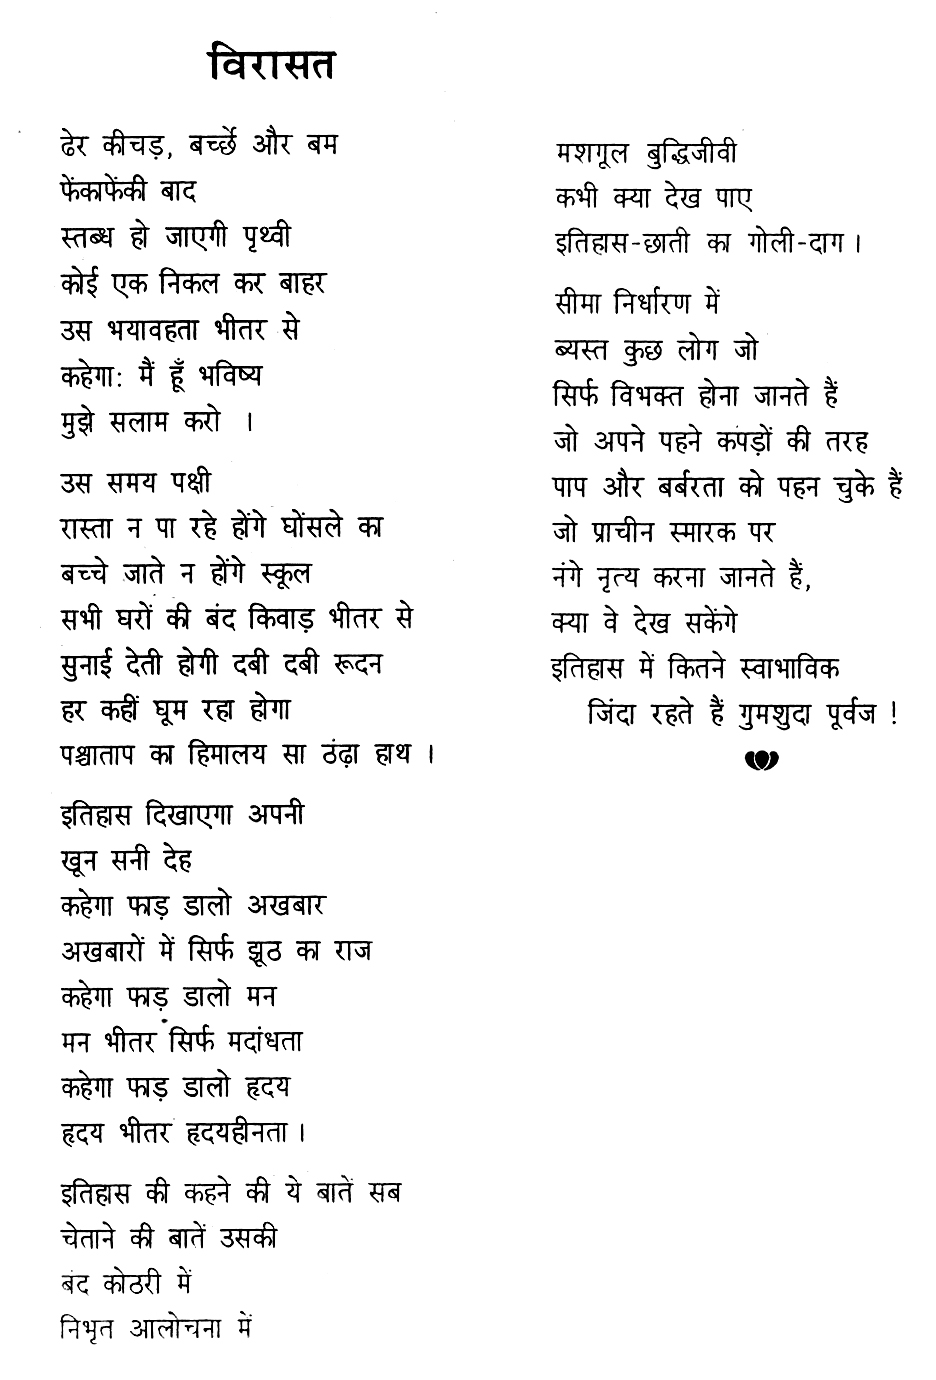 विरासत
ढेर कीचड़, बर्च्छे और बम
फेंकाफेंकी बाद
स्तब्ध हो जाएगी पृथ्वी
कोई एक निकल कर बाहर
उस भयावहता भीतर से
कहेगा: मैं हूँ भविष्य
मुझे सलाम करो ।
उस समय पक्षी
रास्ता न पा रहे होंगे घोंसले का
बच्चे जाते न होंगे स्कूल
सभी घरों की बंद किवाड़ भीतर से
सुनाई देती होगी दबी दबी रूदन
हर कहीं घूम रहा होगा
पश्चाताप का हिमालय सा ठंढ़ा हाथ ।
इतिहास दिखाएगा अपनी
खून सनी देह
कहेगा फाड़ डालो अखबार
अखबारों में सिर्फ झूठ का राज
कहेगा फाड़ डालो मन
मन भीतर सिर्फ मदांधता
कहेगा फाड़ डालो हृदय
हृदय भीतर हृदयहीनता ।
इतिहास की कहने की ये बातें सब
चेताने की बातें उसकी
बंद कोठरी में
निभृत आलोचना में
मशगूल बुद्धिजीवी
कभी क्या देख पाए
इतिहास-छाती का गोली-दाग ।
सीमा निर्धारण में
ब्यस्त कुछ लोग जो
सिर्फ विभक्त होना जानते हैं
जो अपने पहने कपड़ों की तरह
पाप और बर्बरता को पहन चुके हैं
जो प्राचीन स्मारक पर
नंगे नृत्य करना जानते हैं,
क्या वे देख सकेंगे
इतिहास में कितने स्वाभाविक
जिंदा रहते हैं गुमशुदा पूर्वज !